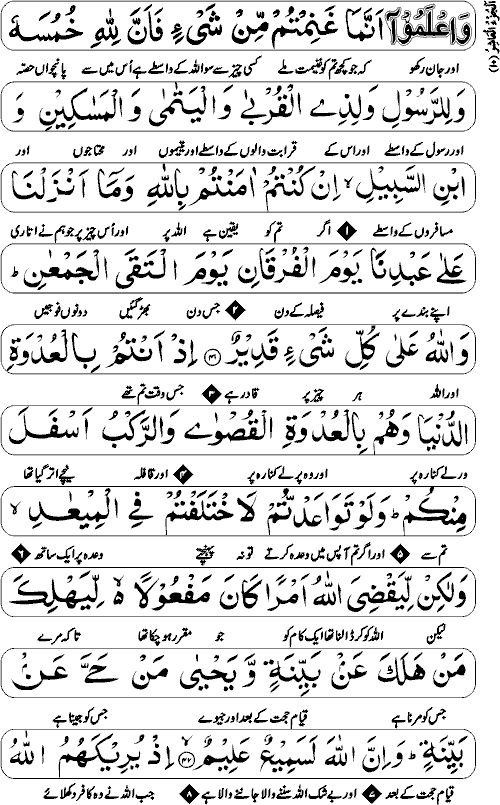 الجزء العاشر (١٠)
وَاعْلَمُوْٓا اَنَّمَا غَنِمْتُمْ مِّنْ شَیْءٍ فَاَنَّ لِلّٰهِ خُمُسَهٗ
اور جان رکھو کہ جو کچھ تم کو غنیمت ملے کسی چیز سے سو اللہ کے واسطے ہے اُس میں سے پانچواں حصہ
وَلِلرَّسُوْلِ وَلِذِی الْقُرْبٰی وَالْیَتٰمٰی وَالْمَسٰكِیْنِ وَ
اور رسول کے واسطے اور اس کے قرابت والوں کے واسطے اور یتیموں اور محتاجوں اور
ابْنِ السَّبِیْلِ ۙ اِنْ كُنْتُمْ اٰمَنْتُمْ بِاللّٰهِ وَمَآ اَنْزَلْنَا
مسافروں کے واسطے ۱ اگر تم کو یقین ہے اللہ پر اور اُس چیز پر جو ہم نے اتاری
عَلٰی عَبْدِنَا یَوْمَ الْفُرْقَانِ یَوْمَ الْتَقَی الْجَمْعٰنِ ؕ
اپنے بندے پر فیصلہ کے دن ۲ جس دن بھڑ گئیں دونوں فوجیں
وَاللّٰهُ عَلٰی كُلِّ شَیْءٍ قَدِیْرٌ ۝۴۱ اِذْ اَنْتُمْ بِالْعُدْوَةِ
اور اللہ ہر چیز پر قادر ہے ۳ جس وقت تم تھے
الدُّنْیَا وَهُمْ بِالْعُدْوَةِ الْقُصْوٰی وَالرَّكْبُ اَسْفَلَ
ورلے کنارہ پر اور وہ پرلے کنارہ پر ۴ اور قافلہ نیچے اتر گیا تھا
مِنْكُمْ ؕ وَلَوْ تَوَاعَدْتُّمْ لَاخْتَلَفْتُمْ فِی الْمِیْعٰدِ ۙ
تم سے ۵ اور اگر تم آپس میں وعدہ کرتے تو نہ پہنچتے وعدہ پر ایک ساتھ ۶
وَلٰكِنْ لِّیَقْضِیَ اللّٰهُ اَمْرًا كَانَ مَفْعُوْلًا ۙ۬ لِّیَهْلِكَ
لیکن اللہ کو کر ڈالنا تھا ایک کام کو جو مقرر ہو چکا تھا تاکہ مرے
مَنْ هَلَكَ عَنْۢ بَیِّنَةٍ وَّیَحْیٰی مَنْ حَیَّ عَنْۢ
جس کو مرنا ہے قیام حجت کے بعد اور جیوے جس کو جینا ہے
بَیِّنَةٍ ؕ وَاِنَّ اللّٰهَ لَسَمِیْعٌ عَلِیْمٌ ۝۴۲ اِذْ یُرِیْكَهُمُ اللّٰهُ
قیام حجت کے بعد ۷ اور بے شک اللہ سننے والا ہے جاننے والا ہے ۸ جب اللہ نے وہ کافر دکھلائے